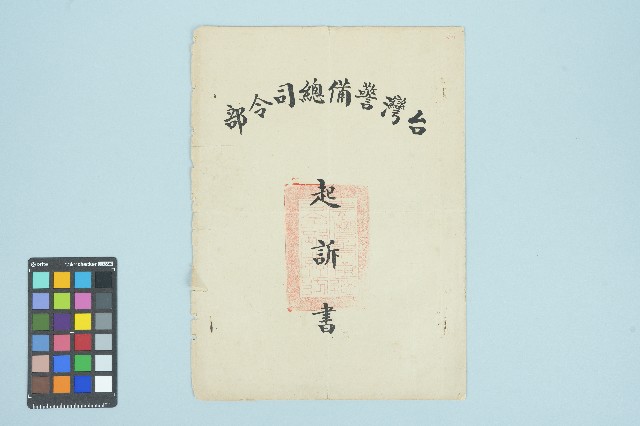 台灣警備總司令部
起訴書
x-rite
colorchecker